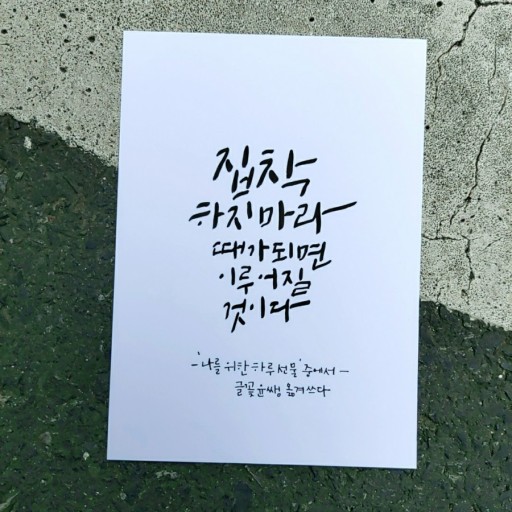 집착
하지마라
때가되면
이루어질
것이다
-'나를 위한 하루 선물' 중에서-
글꽃 윤쌤 옮겨쓰다